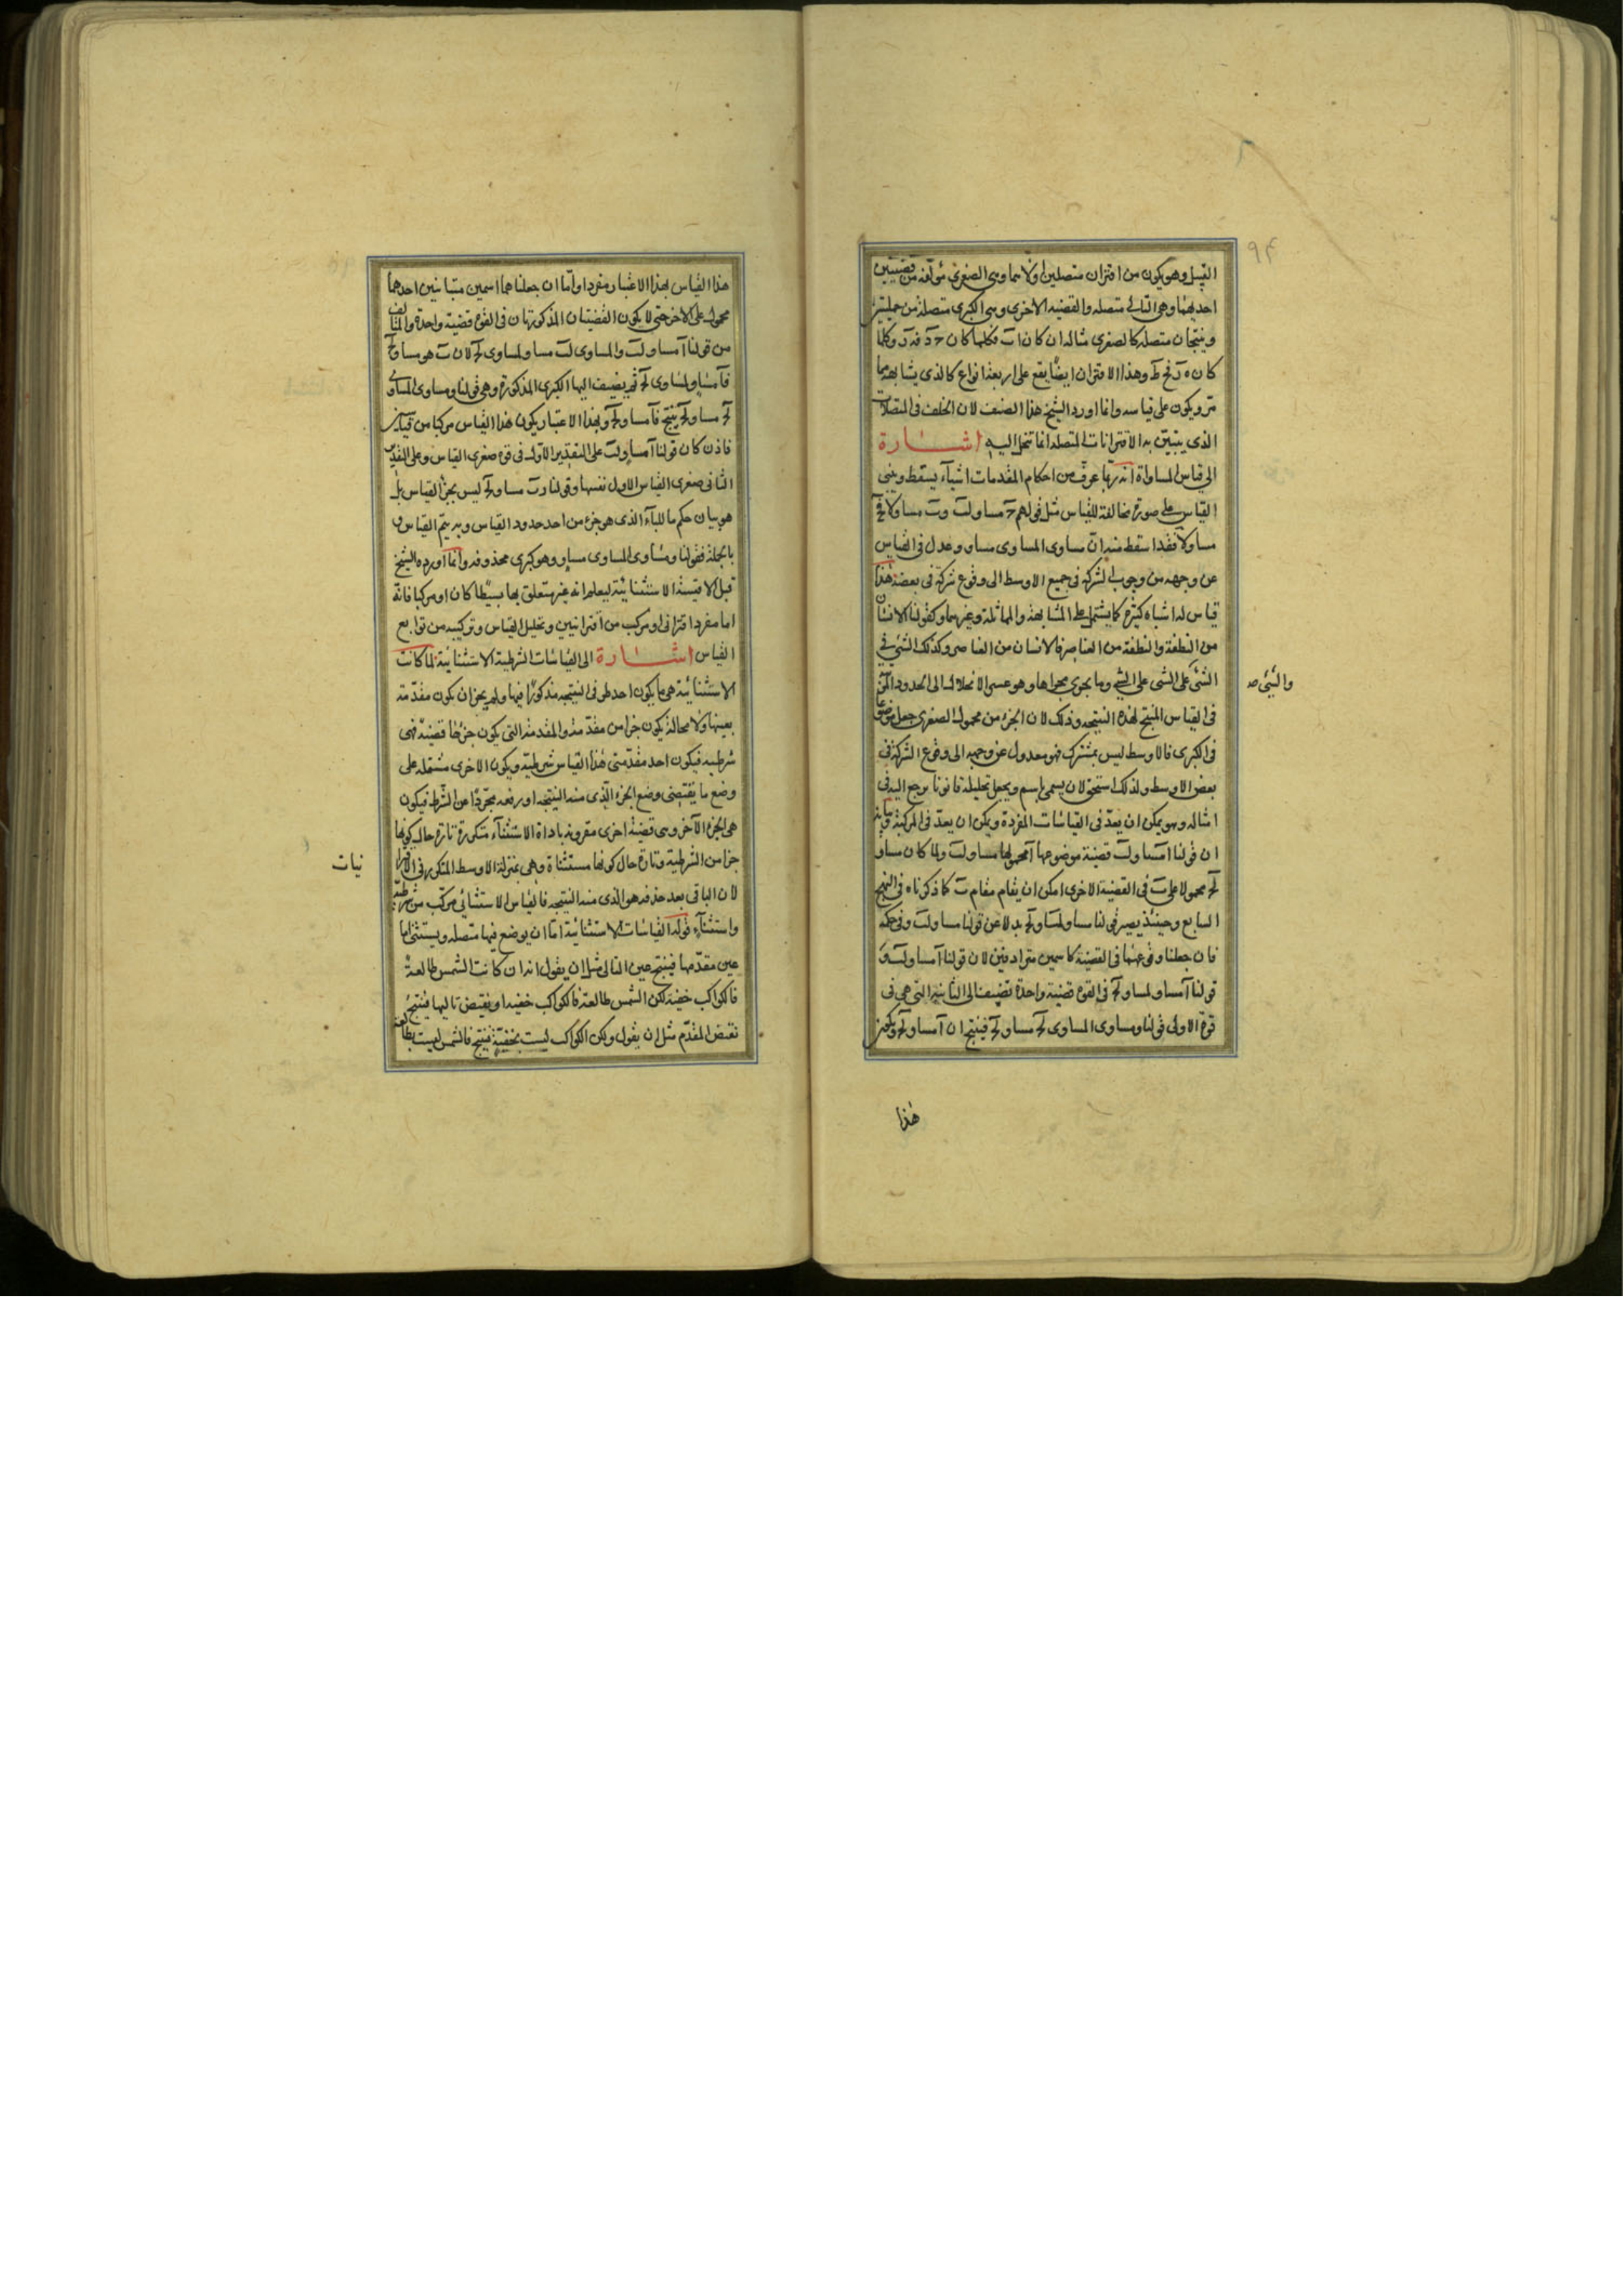 ٩٤
القبيل وهو يكون من اقتران متصلين اولاهما وهى الصغرى مؤلفة من قضيتين
احديهما وهى التالى متصله والقضيه الاخرى وهى الكبرى متصله من حمليتين
وينتجان متصله كالصغرى مثاله ان كان اب فكلما كان ج د فه ر وكلما
كان ه ر فح ط وهذا الاقتران ايضا يقع على اربعة انواع كالذى يشابهه مما
مر ويكون على قياسه وانما اورد الشيخ هذا الصنف لان الخلف فى المتصلات
الذى يتبين به الاقترانات المتصله انما تنحل اليه اشارة
الى قياس المساواة انه ربما عرف من احكام المقدمات اشياء يسقط ويبنى
القياس على صورة مخالفة للقياس مثل قولهم ج مساو لب وب مساو لا فج
مساو لا فقد اسقط منه ان مساوى المساوى مساو وعدل فى القياس
عن وجهه من وجوب الشركة فى جميع الاوسط الى وقوع شركة فى بعضه هذا
قياس له اشباه كثيرة كما يشتمل على المشابهة والمماثلة وغيرهما وكقولنا الانسان
من النطفة والنطفة من العناصر فالانسان من العناصر وكذلك الشئ فى
الشئ على الشئ على الشئ وما يجرى مجراها وهو عسر الانحلال الى الحدود المرتبة
والشئ صح
فى القياس المنتج لهذه النتيجه وذلك لان الجزء من محمول الصغرى جعل موضوعا
فى الكبرى فالاوسط ليس بمشترك فهو معدول عن وجهه الى وقوع الشركة فى
بعض الاوسط ولذلك استحق لان يسمى باسم ويجعل تحليله قانونا يرجع اليه فى
امثاله وهو يمكن ان يعد فى القياسات المفردة ويمكن ان يعد فى المركبة وبيانه
ان قولنا ا مساو لب قضية موضوعها ا محمولها مساو لب ولما كان مساو
لج محمولا على ب فى القضية الاخرى امكن ان يقام مقام ب كما ذكرناه فى النهج
السابع وحينئذ يصير قولنا مساو لمساو لج بدلا عن قولنا مساو لب وفى حكمه
فان جعلنا وقوعهما فى القضية كاسمين مترادفين لان قولنا ا مساو لب و
قولنا ا مساو لمساو لج فى القوة قضية واحدة تضيف الى الثانية التى هى فى
قوة الاولى قولنا ومساوى المساوى لج مساو لج فينتج ان ا مساو لج ويكون
هذا
هذا القياس بهذا الاعتبار مفردا واما ان جعلناهما اسمين متباينين احدهما
محمول على الاخر حتى لا يكون القضيتان المذكورتان فى القوة قضية واحدة والتالف
من قولنا ا مساو لب والمساوى لب مساو لمساوى لج لان ب هو مساو لج
فا مساو لمساوى لج ثم يضيف اليها الكبرى المذكورة وهى قولنا ومساوى المساوى
لج مساو لج ينتج فا مساو لج وبهذا الاعتبار يكون هذا القياس مركبا من قياسين
فاذن كان قولنا ا مساو لب على التقدير الاول فى قوة صغرى القياس وعلى التقدير
الثانى صغرى القياس الاول نفسها وقولنا وب مساو لج ليس بجزء القياس بل
هو بيان حكم ما للباء الذى هو جزء من احد حدود القياس وبه يتم القياس و
بالجملة فقولنا ومساوى المساوى مساو وهو كبرى محذوفه وانما اورده الشيخ
قبل الاقيسة الاستثنائية ليعلم انه غير متعلق بها بسيطا كان او مركبا فانه
اما مفرد اقترانى او مركب من اقترانيين وتحليل القياس وتركيبه من توابع
القياس اشارة الى القياسات الشرطية الاستثنائية لما كانت
الاستثنائية هى ما يكون احد طرفى النتيجه مذكورا فيها ولم يجز ان يكون مقدمة
بعينها ولا محالة يكون جزا من مقدمة والمقدمة التى يكون جزؤها قضية فهى
شرطيه فيكون احد مقدمتى هذا القياس شرطية ويكون الاخرى مشتمله على
وضع ما يقتضى وضع الجزء الذى منه النتيجه او رفعه مجردا عن الشرط فيكون
هى الجزء الآخر وهى قضية اخرى مقرونه باداة الاستثناء متكررة تارة حال كونها
جزا من الشرطية وتارة حال كونها مستثناة وهى بمنزلة الاوسط المتكرر فى الاقترا
نيات
لان الباقى بعد حذفه هو الذى منه النتيجه فالقياس الاستثنائى مركب من شرطية
واستثناء قوله القياسات الاستثنائية اما ان يوضع فيها متصله ويستثنى اما
عين مقدمها فينتج عين التالى مثل ان يقول انه ان كانت الشمس طالعة
فالكواكب خفية لكن الشمس طالعة فالكواكب خفيه او نقيض تاليها فينتج
نقيض المقدم مثل ان يقول ولكن الكواكب ليست بخفية فينتج فالشمس ليست بطالعة